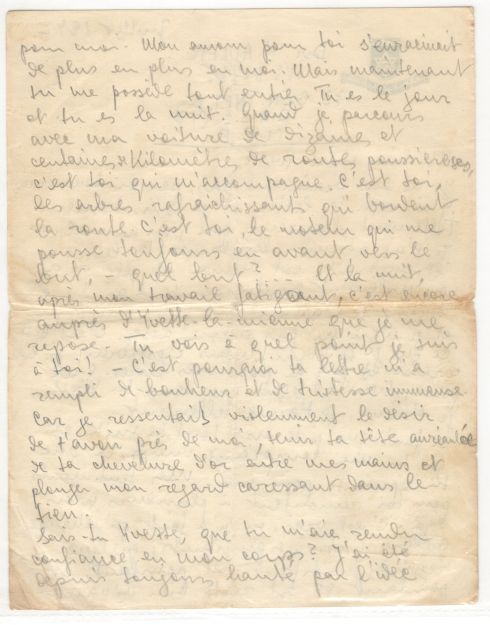 pour moi. Mon amour pour toi s'enracinait
de plus en plus en moi. Mais maintenant
tu me possède tout entier. Tu es le jour
et tu es la nuit. Quand je parcours
avec ma voiture de dizaines et
centaines de Kilomètres de routes poussiéreuses,
c'est toi qui m'accompagne. C'est toi,
les arbres rafraichissants qui bordent
la route. C'est toi, le moteur qui me
pousse toujours en avant vers le
but, - quel but? - Et la nuit,
après mon travail fatigant, c'est encore
auprès d'Yvette-la-mienne que je me
repose. Tu vois à quel point je suis
à toi! - C'est pourquoi ta lettre m'a
rempli de bonheur et de tristesse immense
car je ressentait violemment le désir
de t'avoir près de moi, tenir ta tête auréolée
de ta chevelure d'or entre mes mains et
plonger mon regard caressant dans le
tien.
Sais-tu Yvette, que tu m'aie rendu
confiance en mon corps? J'ai été
depuis toujours hanté par l'idée